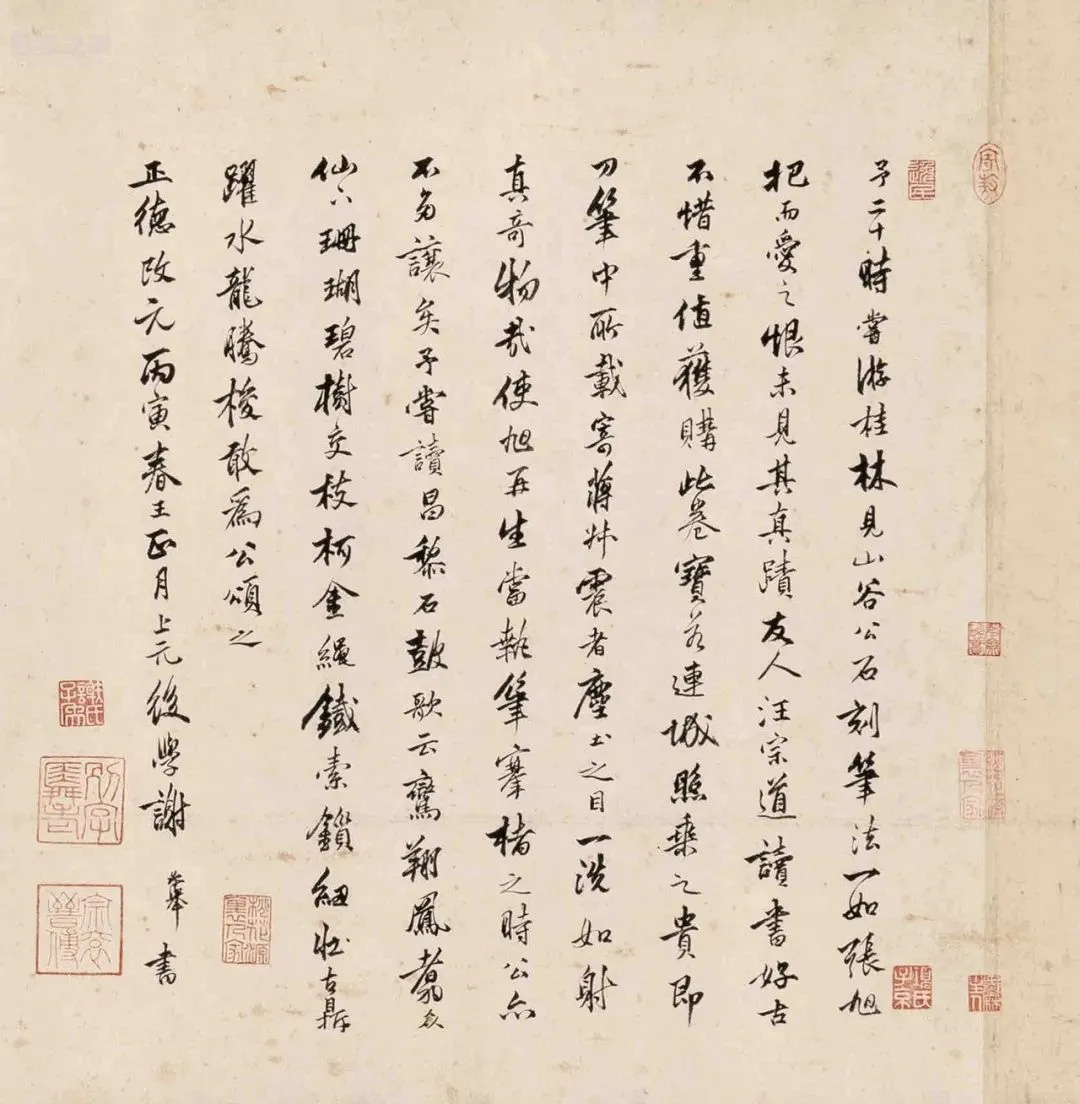 予二十時嘗游桂林見山谷公石刻筆法一如張旭
把而愛之恨未見其真蹟友人汪宗道讀書好古
不惜重值獲購此卷寶若連城照乘之貴即
刀筆中所載寄蔣艸震者塵土之目一洗如射
真奇物哉使旭再生當執筆搴楮之時公亦
不多讓矣予嘗讀昌黎石鼓歌云鸞翔鳳翥众
仙下珊瑚碧樹交枝柯金繩鐵索鎖細壯古鼎
躍水龍騰梭敢為公頌之
正德改元丙寅春王正月上元後學謝 書
項氏子京
桃花源里人家